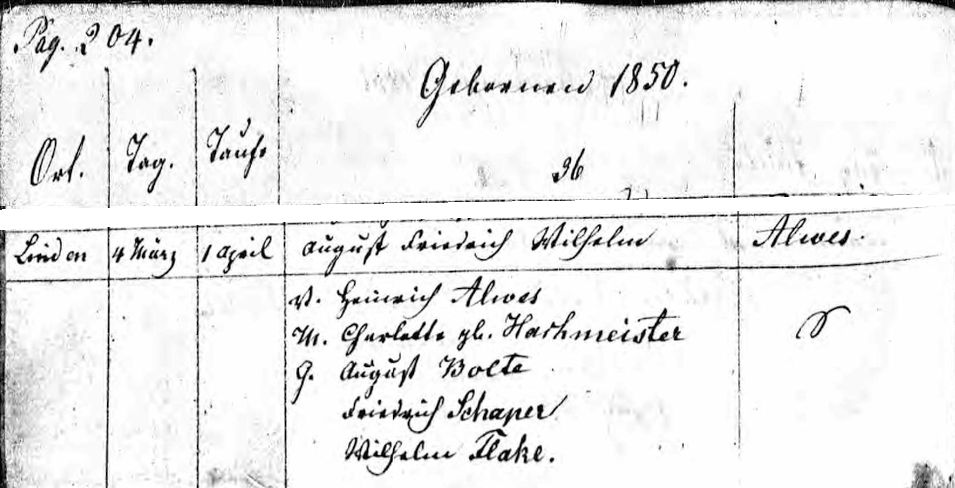 Pag. 204.
Gebornen 1850.
Ort. Tag. Taufe
36
Linden 4 März 1 April August Friedrich Wilhelm Alwes.
V. Heinrich Alwes
M. Charlotte gb. Hachmeister
G. August Bolte
Friedrich Schaper
Wilhelm Flake.